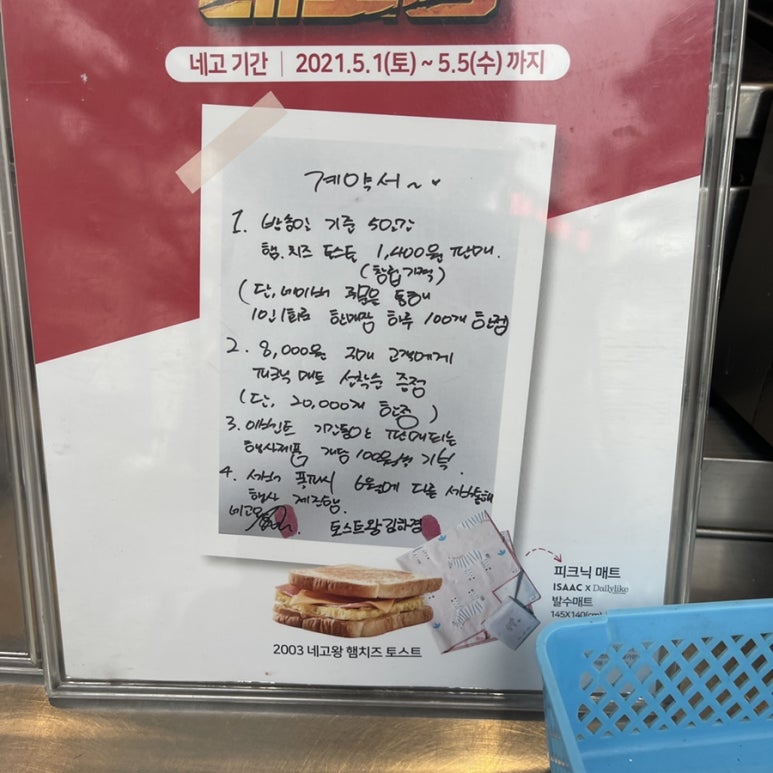 네고 기간 | 2021.5.1(토) ~ 5.5(수) 까지
계약서~♥
1. 방송일 기준 5일간
햄.치즈 토스트 1,400원 판매.
(창립가격)
(단, 네이버 주문을 통해
1인1회로 한매장 하루 100개 한정
2. 8,000원 구매 고객에게
피크닉 매트 선착순 증정
(단, 20,000개 한정)
3. 이벤트 기간동안 판매되는
행사제품 개당 100원씩 기부.
4. 서버 터지면 6월에 다른
행사 재진행.
네고왕 토스트왕 김하경
피크닉 매트
ISAAC X Dailylike
발수매트
145X140(cm)
2003 네고왕 햄치즈 토스트